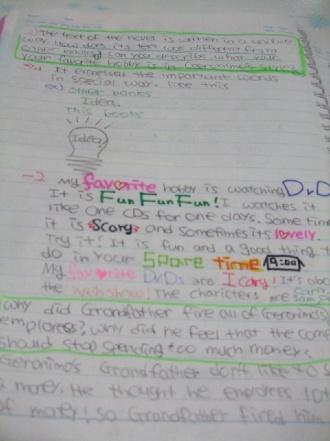 The text of the novel is written in a unique
way. How does its text look different from
other novels? Can you describe what your
your favorite hobby is in Geronimo's style?
It expresses the important words
in special way. like this
ex) Other books
Idea.
This books
Idea!
-2 My favorite hobby is watching DVD
It is Fun Fun Fun! I watches it
like one CDs for one days. Some time
it is Scary and sometimes its lovely.
Try it! It is fun and a good thing t
do in your Spare time 9:00
My favorite DVDs are I Cary! It's abo
the web show! The characters are Carly
Sam
Why did Grandfather fire all of Geronimo's
employees? Why did he feel that the comp
should stop spending too much money.
Geronimo's Grandfather don't like to s
money. He thought he employees lot
of money! so Grandfather fired him